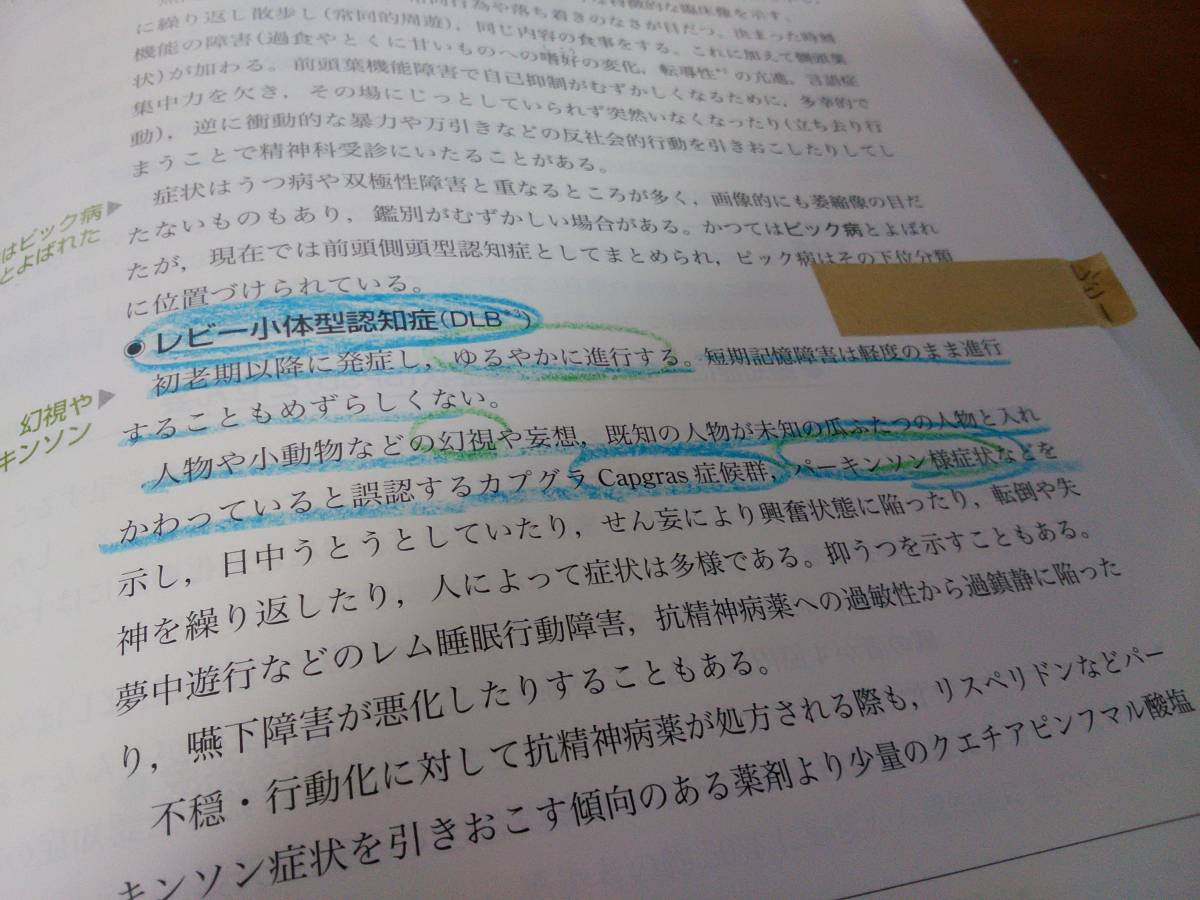 に繰り返し散歩し(常同的周遊),同じ内容の食事をする。これに加えて側頭葉
機能の障害(過食やとくに甘いものへの嗜好の変化,転導性の亢進,言語症
状)が加わる。前頭葉機能障害で自己抑制がむずかしくなるために,多幸的で
集中力を欠き,その場にじっとしていられず突然いなくなったり(立ち去り行
動),逆に衝動的な暴力や万引きなどの反社会的行動を引きおこしたりしてし
まうことで精神科受診にいたることがある。
症状はうつ病や双極性障害と重なるところが多く,画像的にも萎縮像の目だ
たないものもあり,鑑別がむずかしい場合がある。かつてはピック病とよばれ
たが,現在では前頭側頭型認知症としてまとめられ,ピック病はその下位分類
に位置づけられている。
はピック病
とよばれた
レビー
●レビー小体型認知症(DLB*3)
初老期以降に発症し,ゆるやかに進行する。短期記憶障害は軽度のまま進行
することもめずらしくない。
幻視や
キンソン
人物や小動物などの幻視や妄想,既知の人物が未知の瓜ふたつの人物と入れ
かわっていると誤認するカプグラ Capgras 症候群,パーキンソン様症状などを
示し,日中うとうとしていたり,せん妄により興奮状態に陥ったり,転倒や失
神を繰り返したり,人によって症状は多様である。抑うつを示すこともある。
夢中遊行などのレム睡眠行動障害,抗精神病薬への過敏性から過鎮静に陥った
り,嚥下障害が悪化したりすることもある。
不穏・行動化に対して抗精神病薬が処方される際も,リスペリドンなどパー
キンソン症状を引きおこす傾向のある薬剤より少量のクエチアピンフマル酸塩